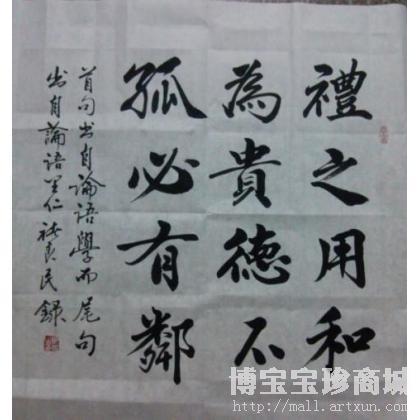 禮之用和
為貴德不
孤必有鄰
首句出自論語學而尾句
出自論語里仁 民錄
博宝宝珍商城
http://www.artxun.com